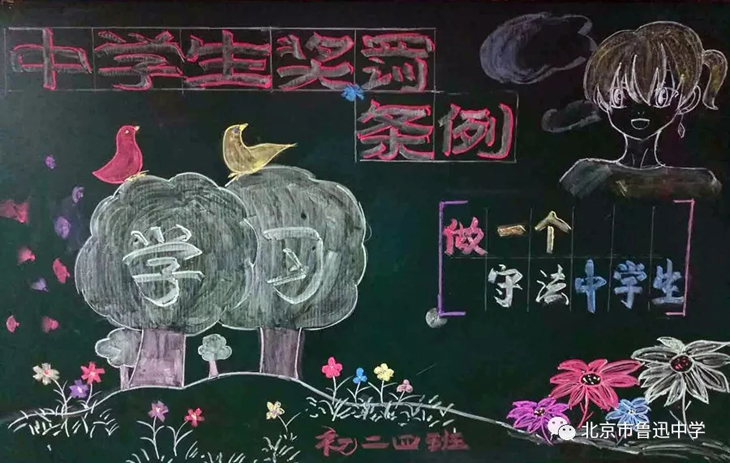 中学生奖罚
条例
学习
做一个
守法中学生
初二四班
北京市鲁迅中学